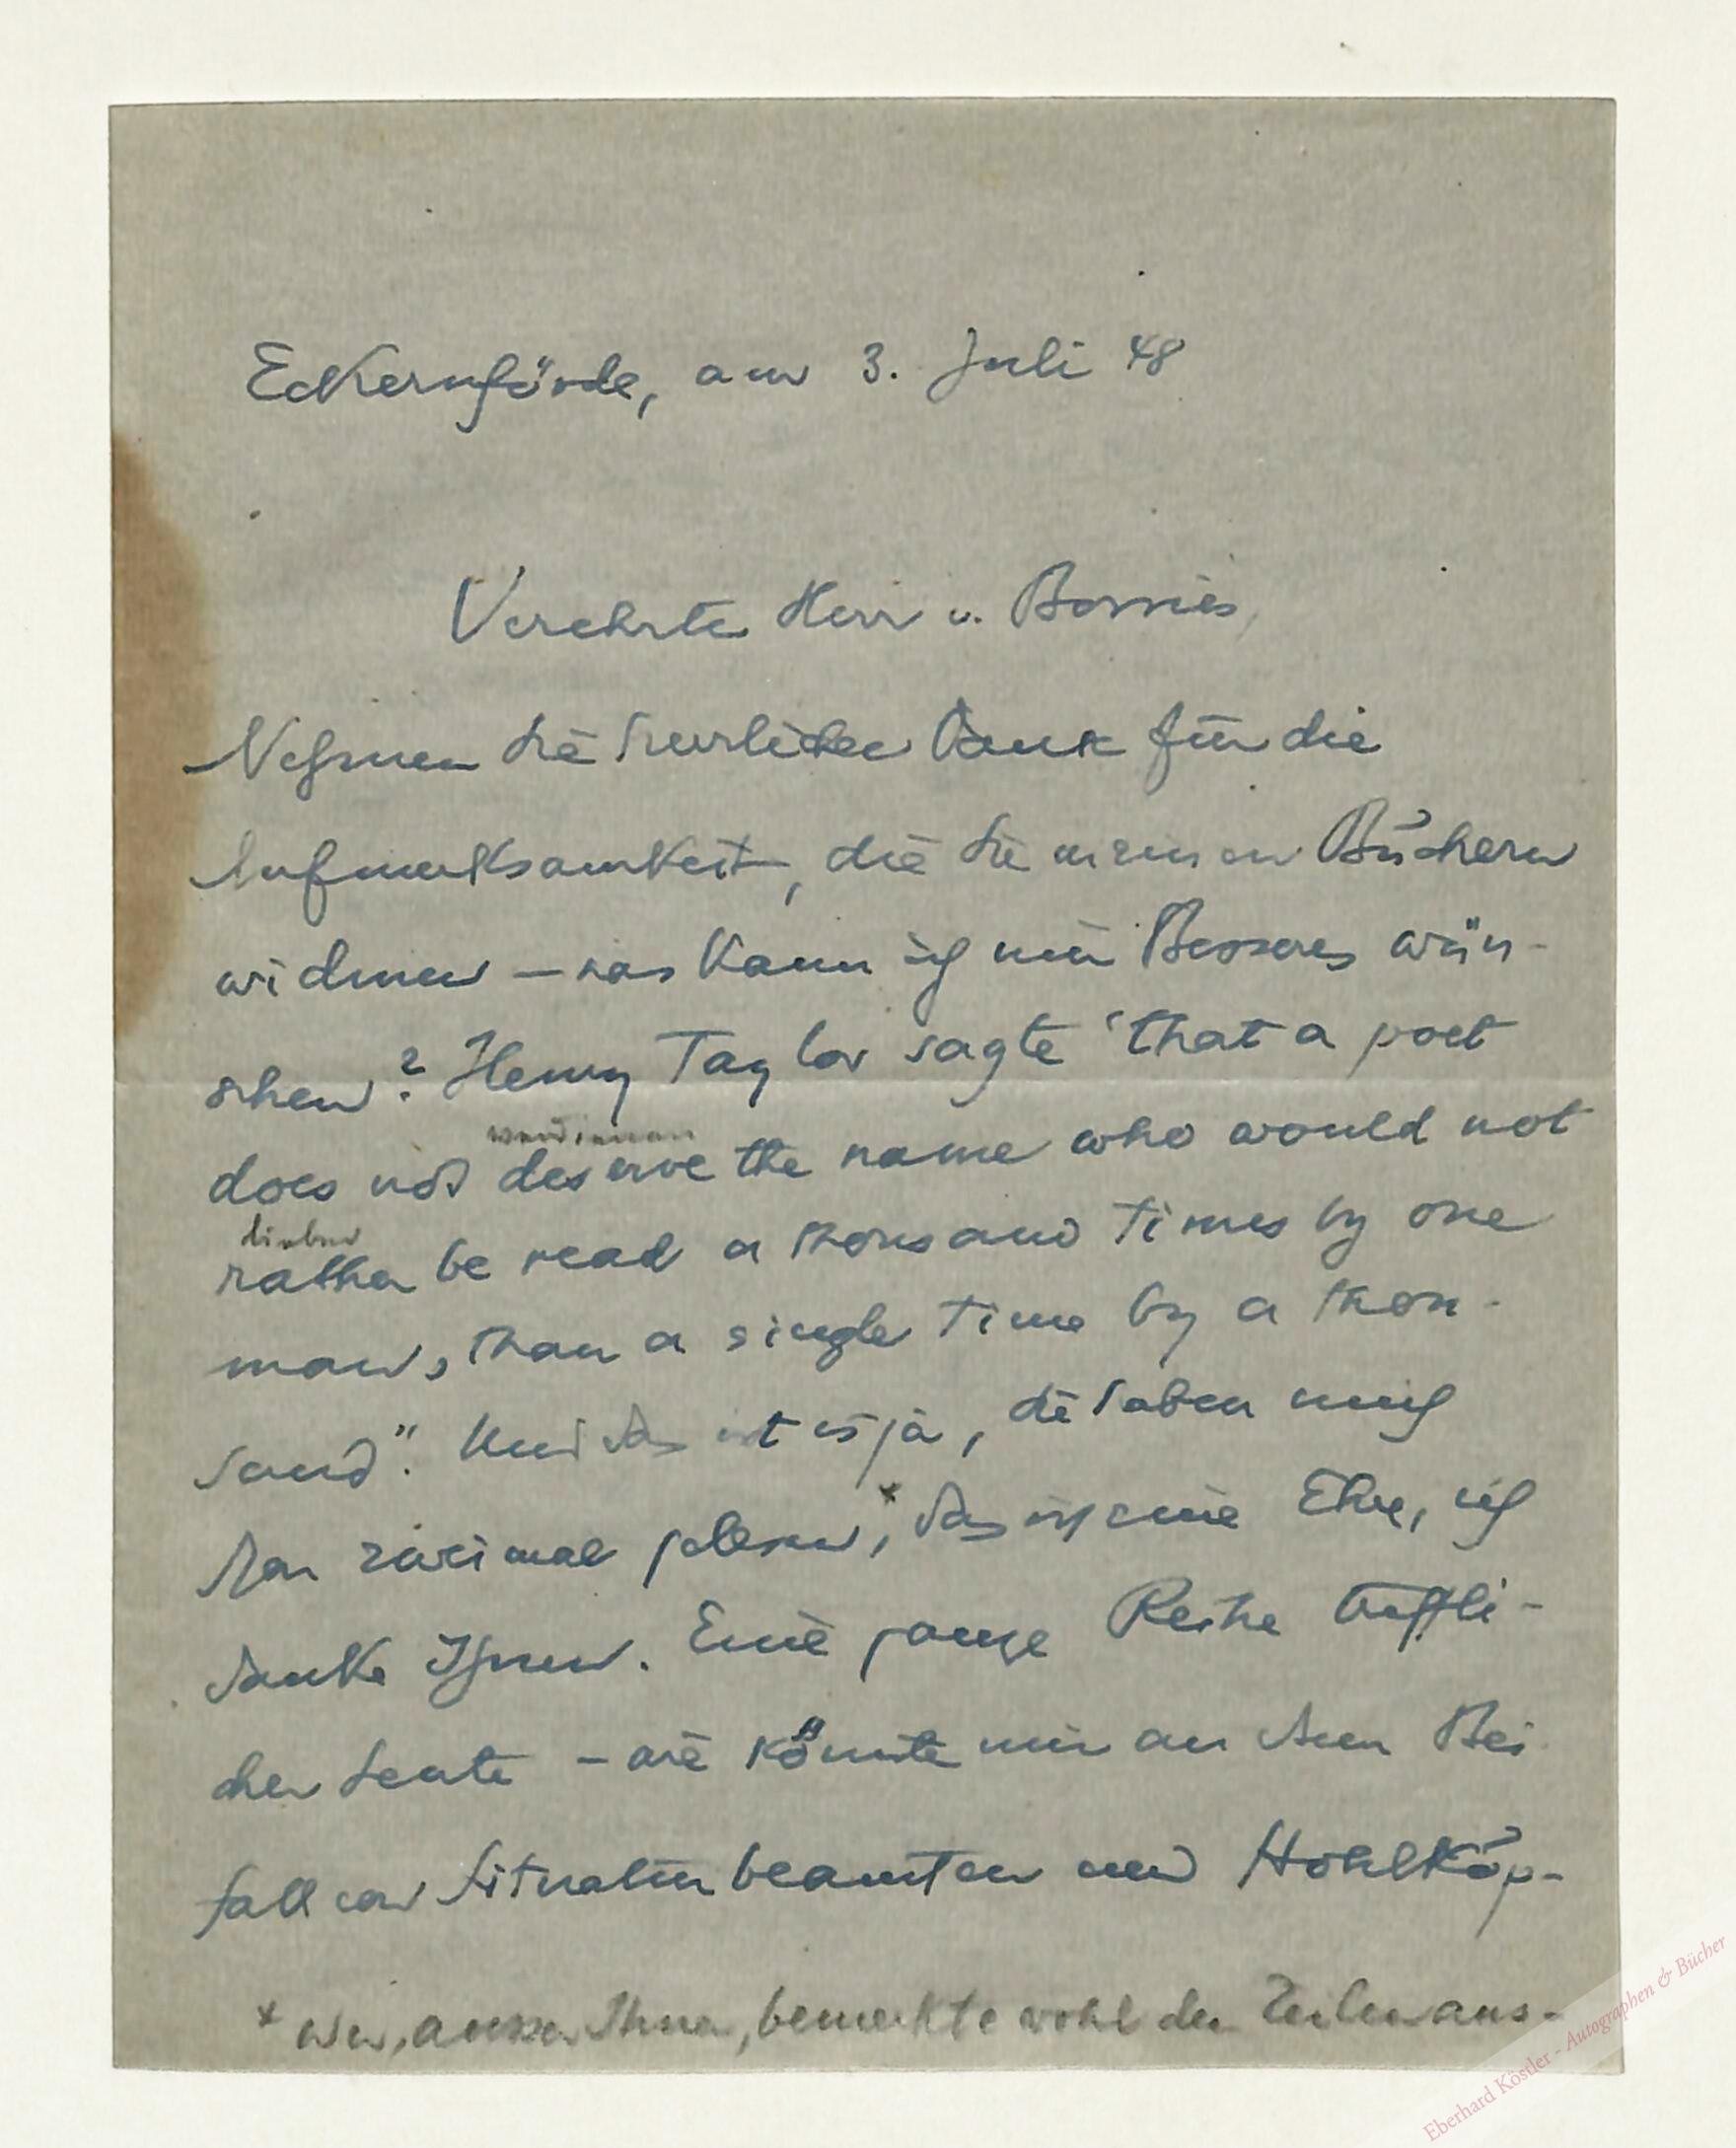 Eckernförde, am 3. Juli 48
Verehrter Herr v. Borries,
Nehmen Sie herzlichen Dank für die
Aufmerksamkeit, die Sie meinen Büchern
widmen – was kann ich mir Besseres wün-
schen? Henry Taylor sagte 'that a poet
verdienen
does not deserve the name who would not
lieber
rather be read a thousand times by one
man, than a single time by a thou-
sand". Und das ist es ja, Sie haben mich
gar zweimal gelesen,* das ist eine Ehre, ich
danke Ihnen. Eine ganze Reihe trefli-
cher Leute – wie könnte mir an dem Bei
fall von Literaturbeamten und Hohlköp-
* Wer, ausser Ihnen, bemerkte wohl den Zeilenaus-
Eberhard Köstler - Autographen & Bücher